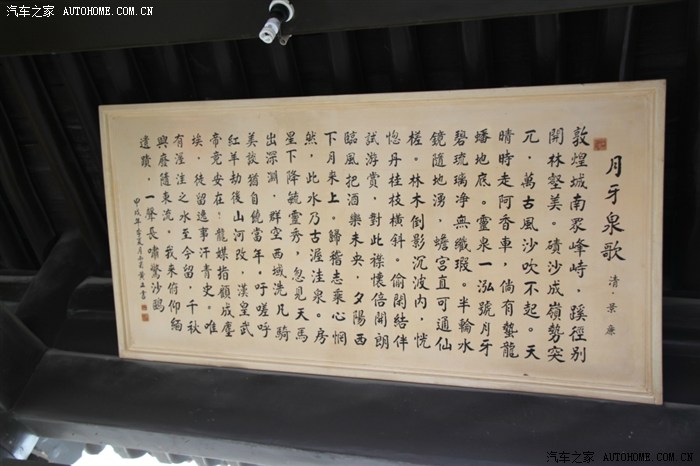 汽车之家 AUTOHOME.COM.CN
月牙泉歌
清·景廉
敦煌城南眾峰峙，蹊徑別
開林壑美。磧沙成嶺勢突
兀，萬古風沙吹不起。天
晴時走阿香車，倘有蟄龍
蟠地底。靈泉一泓號月牙
碧琉璃淨無纖瑕。半輪水
鏡隨地湧，蟾宮直可通仙
槎。林木倒影沉波內，恍
惚丹桂枝橫斜。偷閑結伴
試游賞，對此襟懷倍開朗
臨風把酒樂未央，夕陽西
下月來上。歸稽志乘心惘
然，此水乃古渥洼泉。房
星下降毓靈秀，忽見天馬
出深淵，群空西域洗凡騎
美談猶自饒當年。吁嗟呼
紅羊劫後山河改，漢皇武
帝竟安在！龍媒指顧成塵
埃，徒留逸事汗青史。唯
有渥洼之水至今留，千秋
興廢隨東流。我來俯仰緬
遺躅，一聲長嘯驚沙鷗
甲戌年
書
汽车之家 AUTOHOME.COM.CN